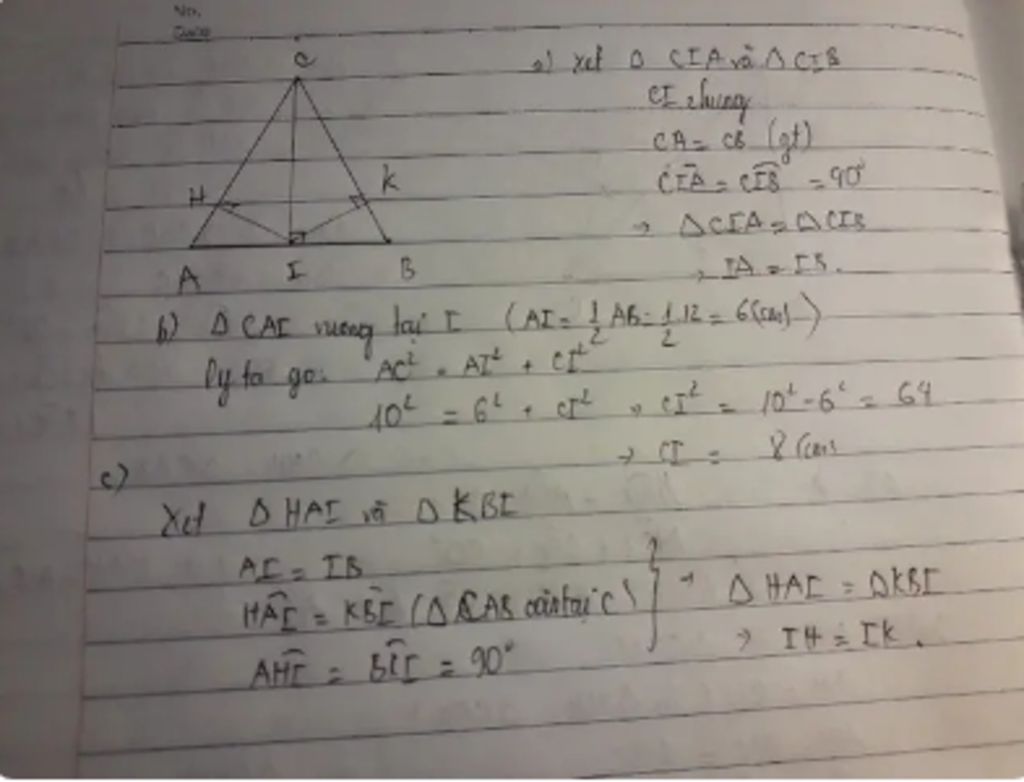 No.
Date
C
H
K
A I B
a) xét Δ CIA và Δ CIB
CI chung
CA = CB (gt)
CIA = CIB = 90°
→ ΔCIA = ΔCIB
→ IA = IB.
b) Δ CAI vuông tại I (AI = 1/2 AB = 1/2.12 = 6(cm))
Py ta go: AC² = AI² + CI²
10² = 6² + CI² → CI² = 10² - 6² = 64
→ CI = 8 (cm)
c)
Xét Δ HAI và Δ KBI
AI = IB
HAI = KBI (Δ CAB cân tại C)
AHI = BKI = 90°
→ Δ HAI = ΔKBI
→ IH = IK.